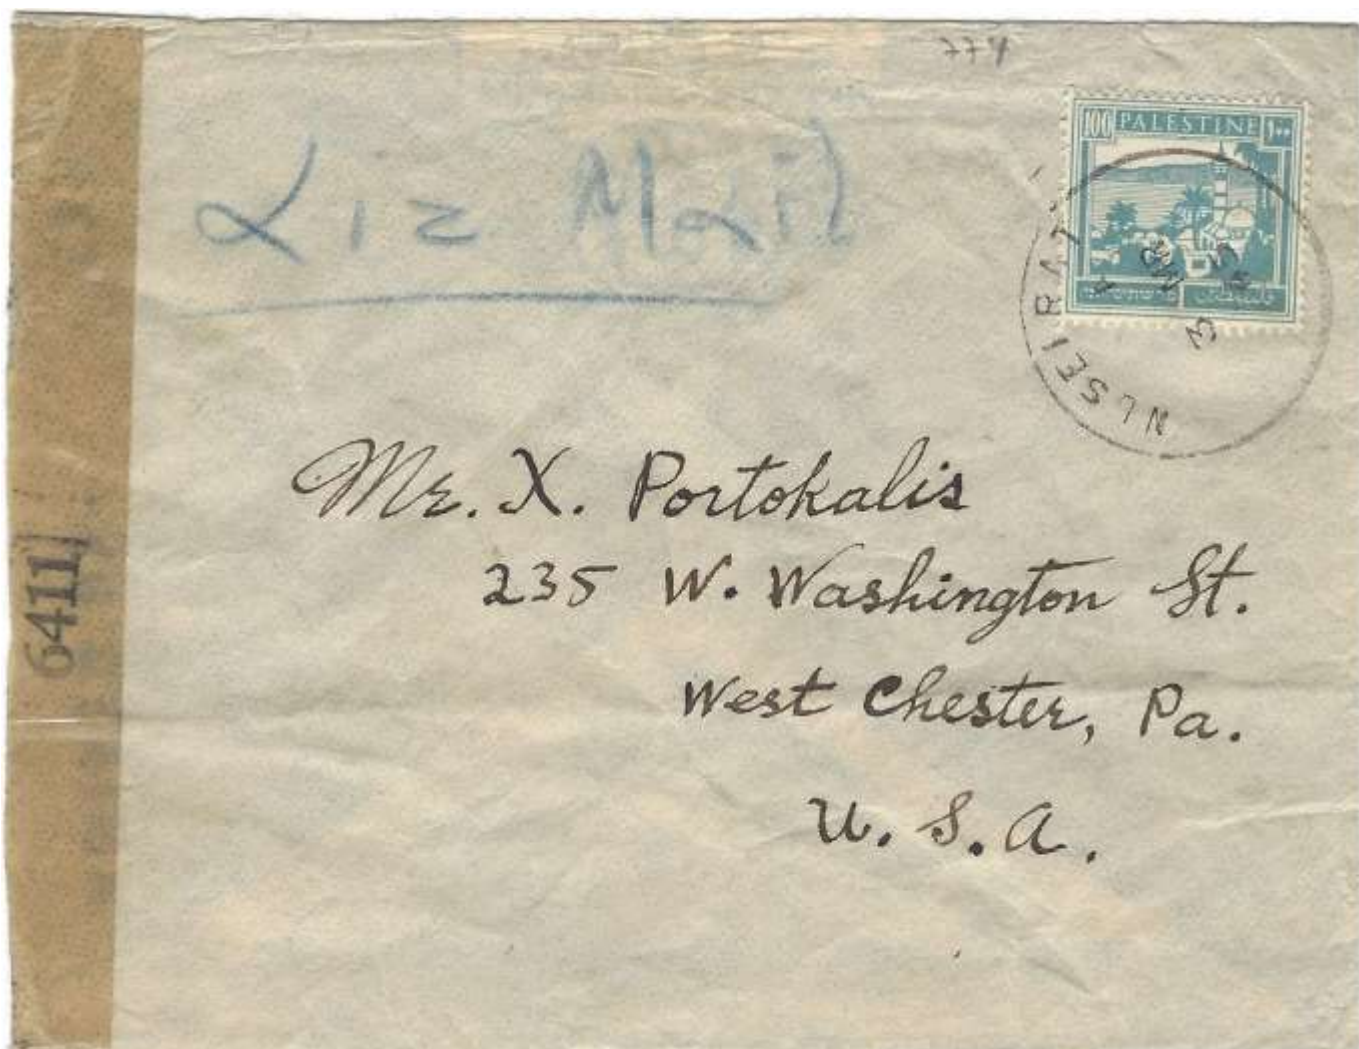 774
100 PALESTINE ١٠٠
Air Mail
NUSEIRAT
Mr. X. Portokalis
235 W. Washington St.
West Chester, Pa.
U. S. A.
6411